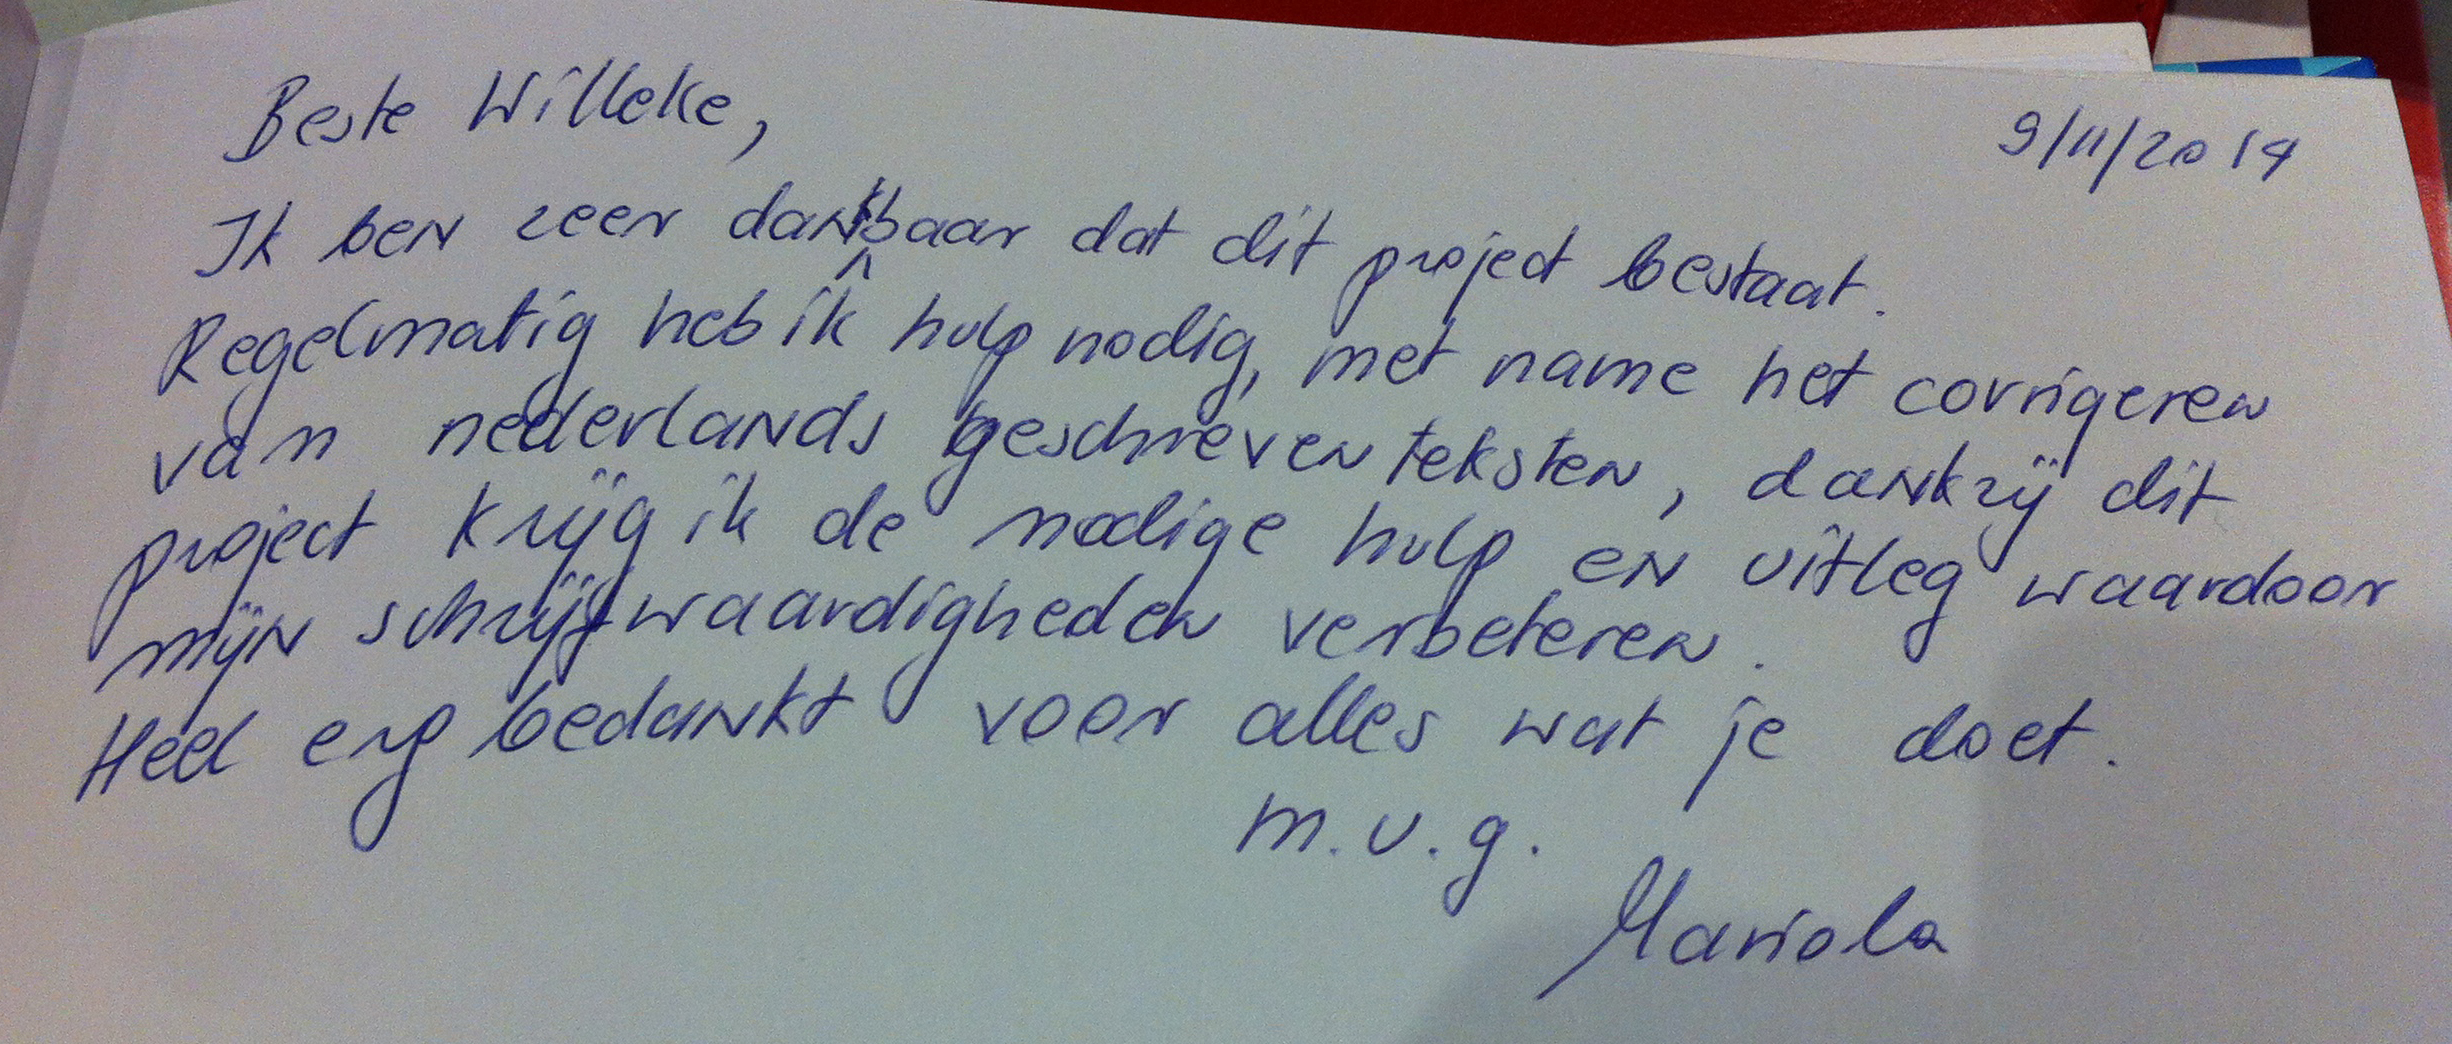 Beste Willeke,
9/11/2014
Ik ben zeer dankbaar dat dit project bestaat.
Regelmatig heb ik hulp nodig, met name het corrigeren
van nederlands geschreven teksten, dankzij dit
project krijg ik de nodige hulp en uitleg waardoor
mijn schrijfwaardigheden verbeteren.
Heel erg bedankt voor alles wat je doet.
m.v.g.
Mariola